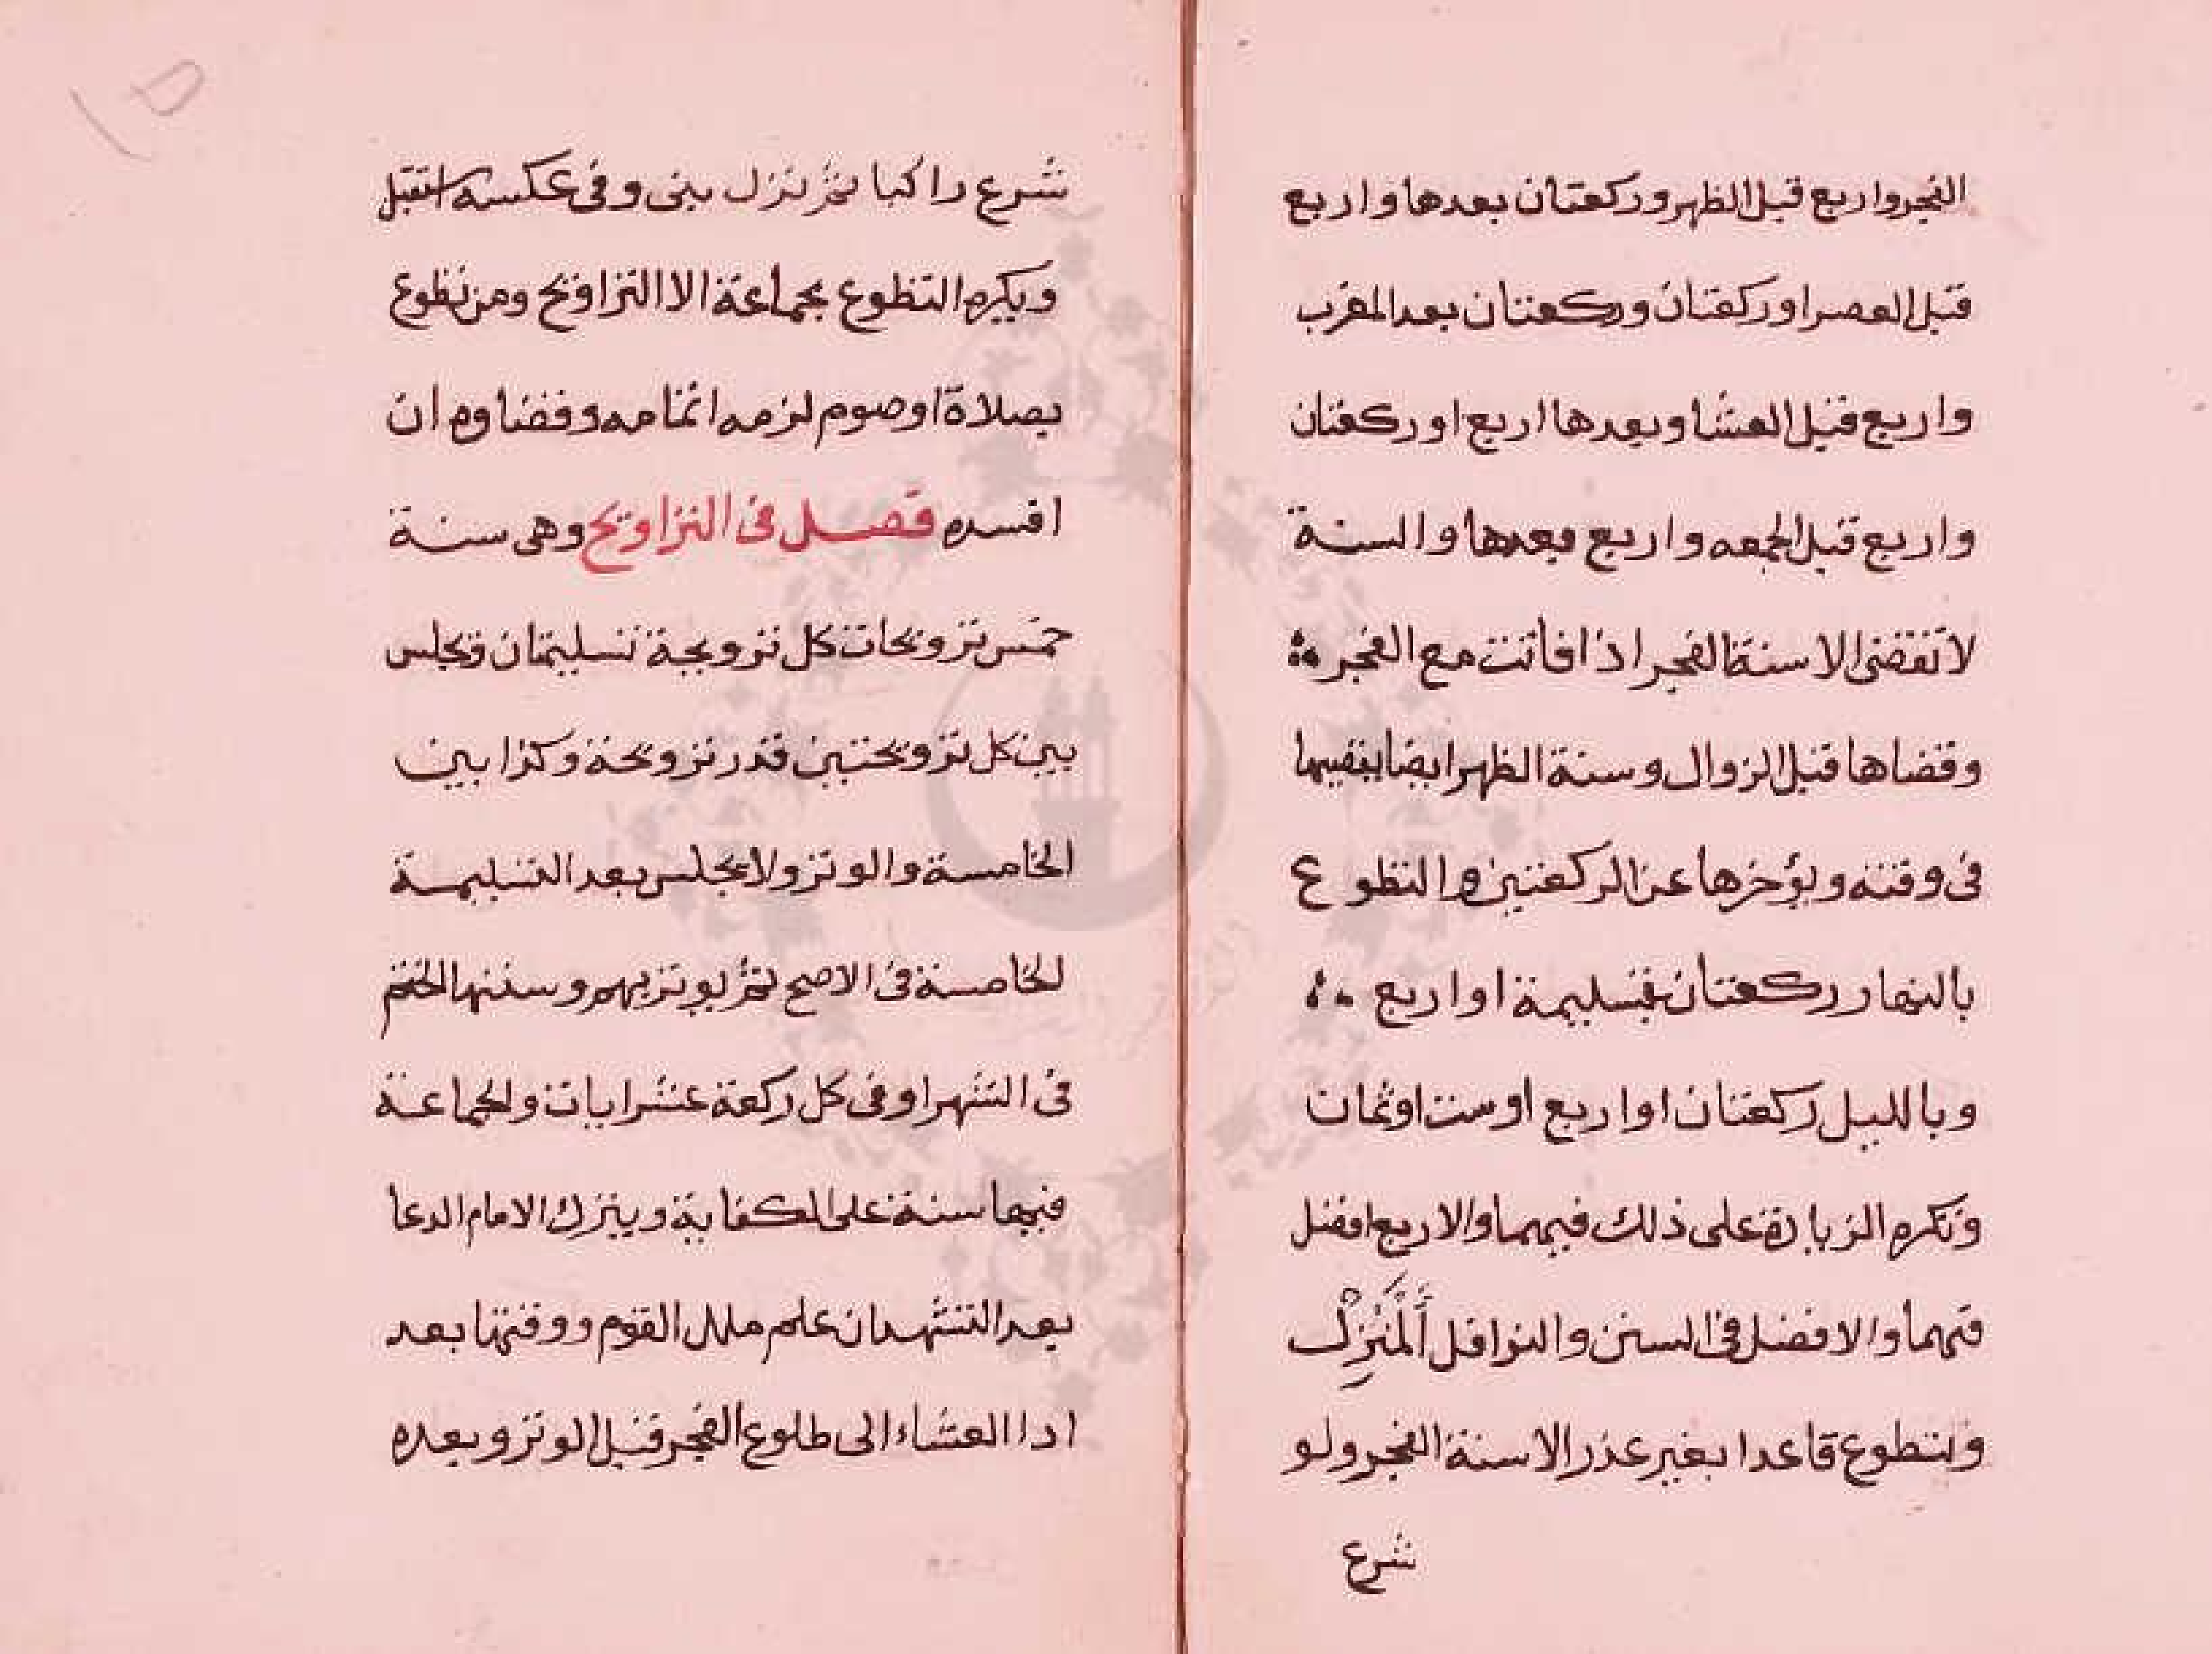 الفجر واربع قبل الظهر وركعتان بعدها واربع
قبل العصر او ركعتان وركعتان بعد المغرب
واربع قبل العشا وبعدها اربع او ركعتان
واربع قبل الجمعه واربع بعدها والسنة
لا تقضى الا سنة الفجر اذا فاتت مع الفجر
وقضاها قبل الزوال وسنة الظهر ايضا يقضيها
فى وقته ويؤخرها عن الركعتين والتطوع
بالنهار ركعتان بتسليمة او اربع
وبالليل ركعتان او اربع او ست او ثمان
وتكره الزيادة على ذلك فيهما والاربع افضل
فيهما والافضل فى السنن والنوافل اَلْمَنْزِلْ
ويتطوع قاعدا بغير عذر الا سنة الفجر ولو
شرع
١٥
شرع راكبا ثم نزل بنى وفى عكسه استقبل
ويكره التطوع بجماعة الا التراويح ومن تطوع
بصلاة او صوم لزمه اتمامه وقضاوه ان
افسده فصل فى التراويح وهى سنة
خمس ترويحات كل ترويحة تسليمتان ويجلس
بين كل ترويحتين قدر ترويحة وكذا بين
الخامسة والوتر ولا يجلس بعد التسليمة
الخامسة فى الاصح ثم يوتر بهم وسنتها الختم
فى الشهر او فى كل ركعة عشر ايات والجماعة
فيها سنة على الكفاية ويترك الامام الدعا
بعد التشهد ان علم ملل القوم ووقتها بعد
ادا العشاء الى طلوع الفجر قبل الوتر وبعده